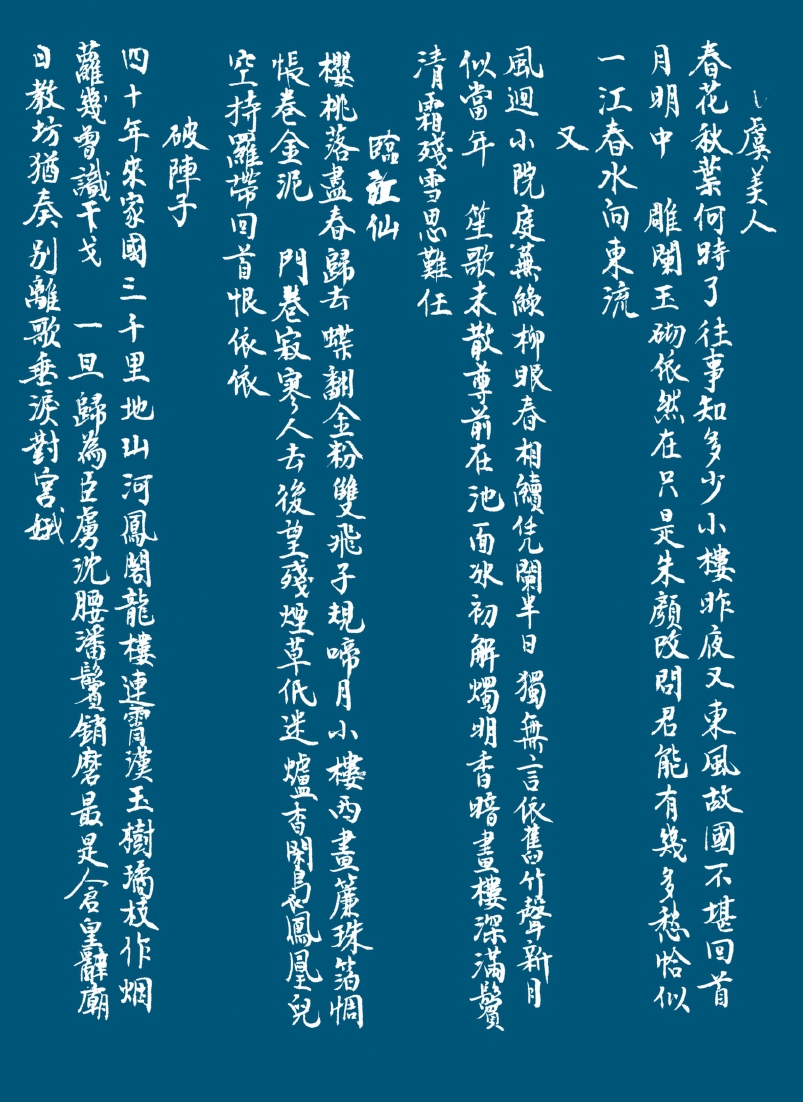 虞美人
春花秋葉何時了往事知多少小樓昨夜又東風故國不堪回首
月明中　雕闌玉砌依然在只是朱顏改問君能有幾多愁恰似
一江春水向東流
又
風迴小院庭蕪綠柳眼春相續凭闌半日獨無言依舊竹聲新月
似當年　笙歌未散尊前在池面冰初解燭明香暗畫樓深滿鬢
清霜殘雪思難任
臨江仙
櫻桃落盡春歸去蝶翻金粉雙飛子規啼月小樓西畫簾珠箔惆
悵卷金泥　門巷寂寥人去後望殘煙草低迷爐香閑裊鳳凰兒
空持羅帶回首恨依依
破陣子
四十年來家國三千里地山河鳳閣龍樓連霄漢玉樹璚枝作烟
蘿幾曾識干戈　一旦歸為臣虜沈腰潘鬢銷磨最是倉皇辭廟
日教坊猶奏别離歌垂淚對宮娥